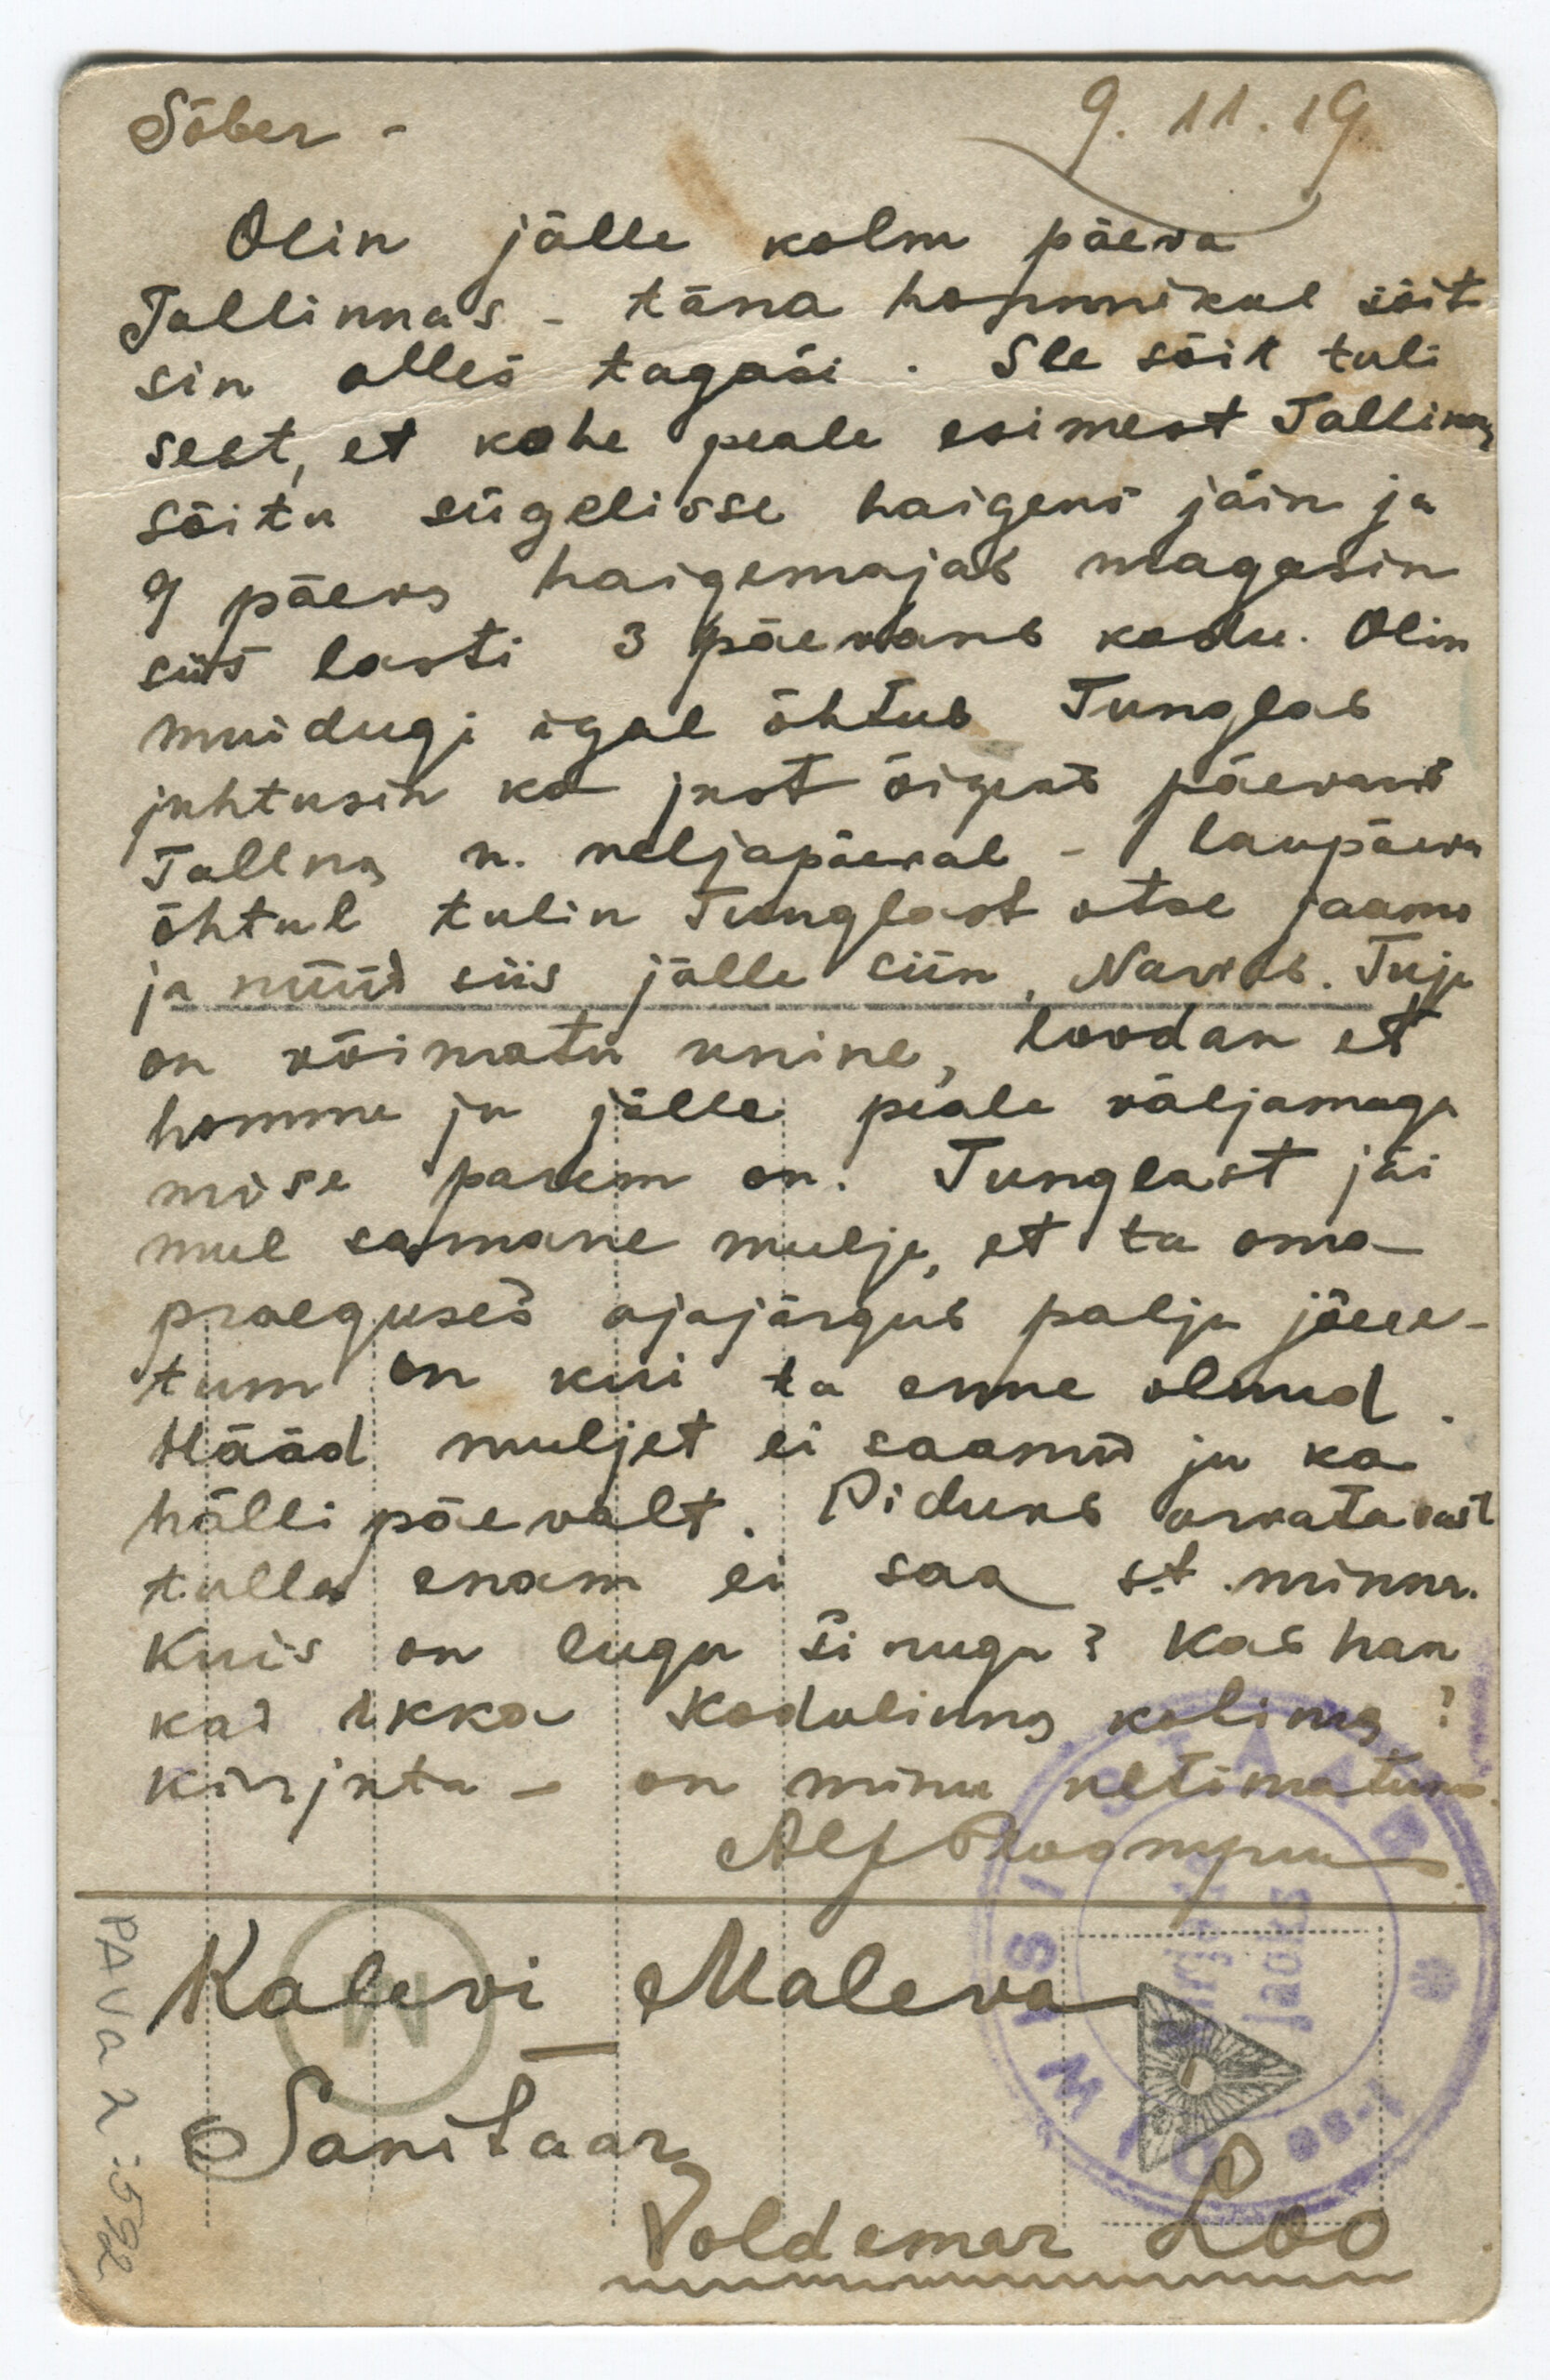 Sõber -
9. 11. 19.
Olin jälle kolm päeva
Tallinnas - täna hommikul sõit
sin alles tagasi. See sõit tuli
sest, et kohe peale esimest Tallinna
sõitu sügelisse haigeks jäin ja
9 päeva haigemajas magasin
siis lasti 3 päevaks kodu. Olin
muidugi igal õhtus Tunglas
juhtusin ka just õigeks päevaks
Tallna n. neljapäeval - laupäeva
õhtul tulin Tunglast otse jaama
ja nüüd siis jälle siin, Narvas. Tuju
on võimatu unine, loodan et
homme ju jälle peale väljamaga
mise parem on. Tunglast jäi
mul samane mulje, et ta oma
praeguses ajajärgus palju jõue-
tum on kui ta enne olnud.
Hääd muljet ei saanud ju ka
hällipäevalt. Piduks arvatavasti
tulla enam ei saa s.t. minna.
Kuis on lugu sinuga? Kas han
kad ikka kodulinna kolima?
Kirjuta - on minu ultimatum.
Alf
Kalevi Maleva
Sanitaar
Voldemar Loo
PAVa 2:592
M